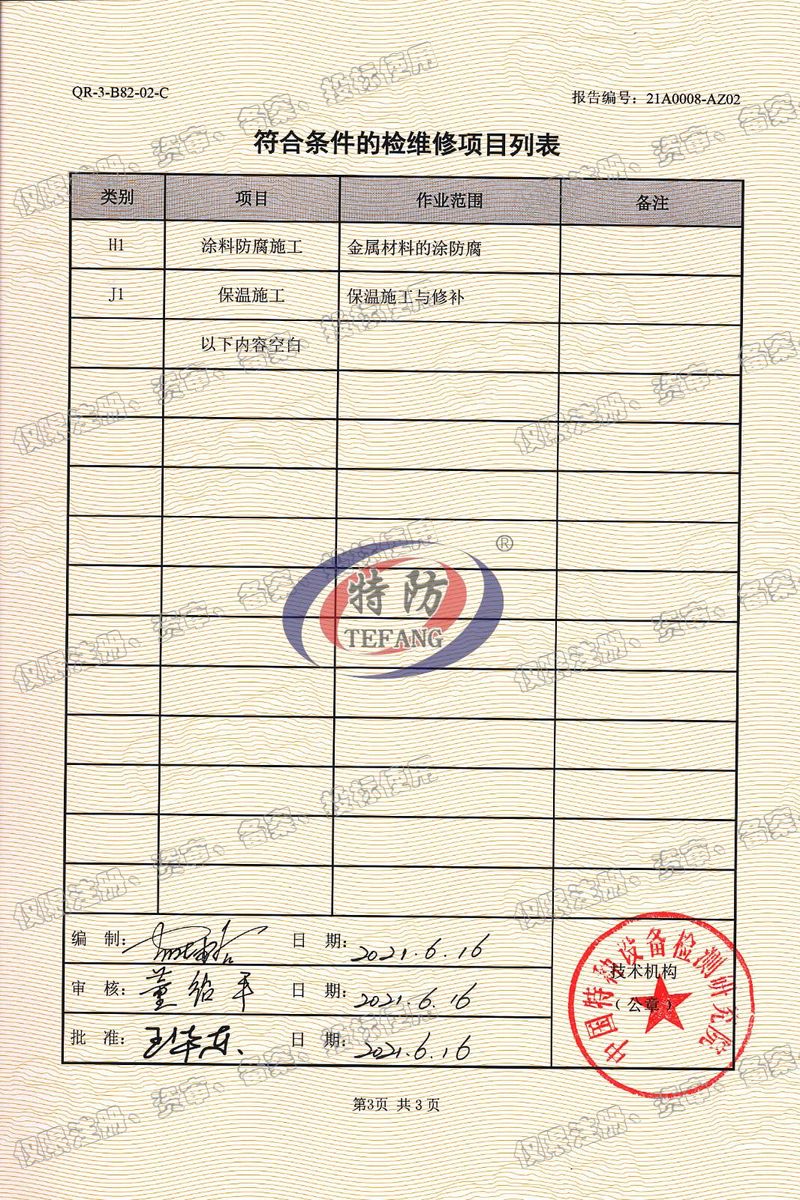 QR-3-B82-02-C
报告编号：21A0008-AZ02
符合条件的检维修项目列表
类别 项目 作业范围 备注
H1 涂料防腐施工 金属材料的涂防腐
J1 保温施工 保温施工与修补
以下内容空白
特防
®
TEFANG
编 制： 日 期：2021.6.16
审 核：董绍军 日 期：2021.6.16
批 准： 日 期：2021.6.16
中国特种设备检测研究院
技术机构
（公章）
第3页 共3页
仅限注册、资审、备案、投标使用